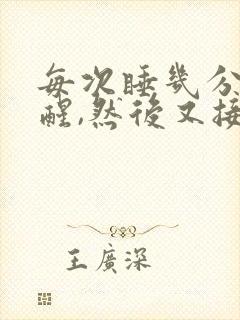 每次睡幾分
醒,然後又接
王廣深